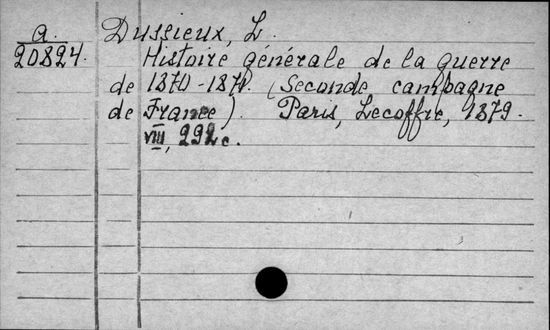 a.
20824.
Dussieux, L.
Histoire générale de la guerre
de 1870-1871. (Seconde campagne
de France). Paris, Lecoffre, 1879.
VIII, 292 c.